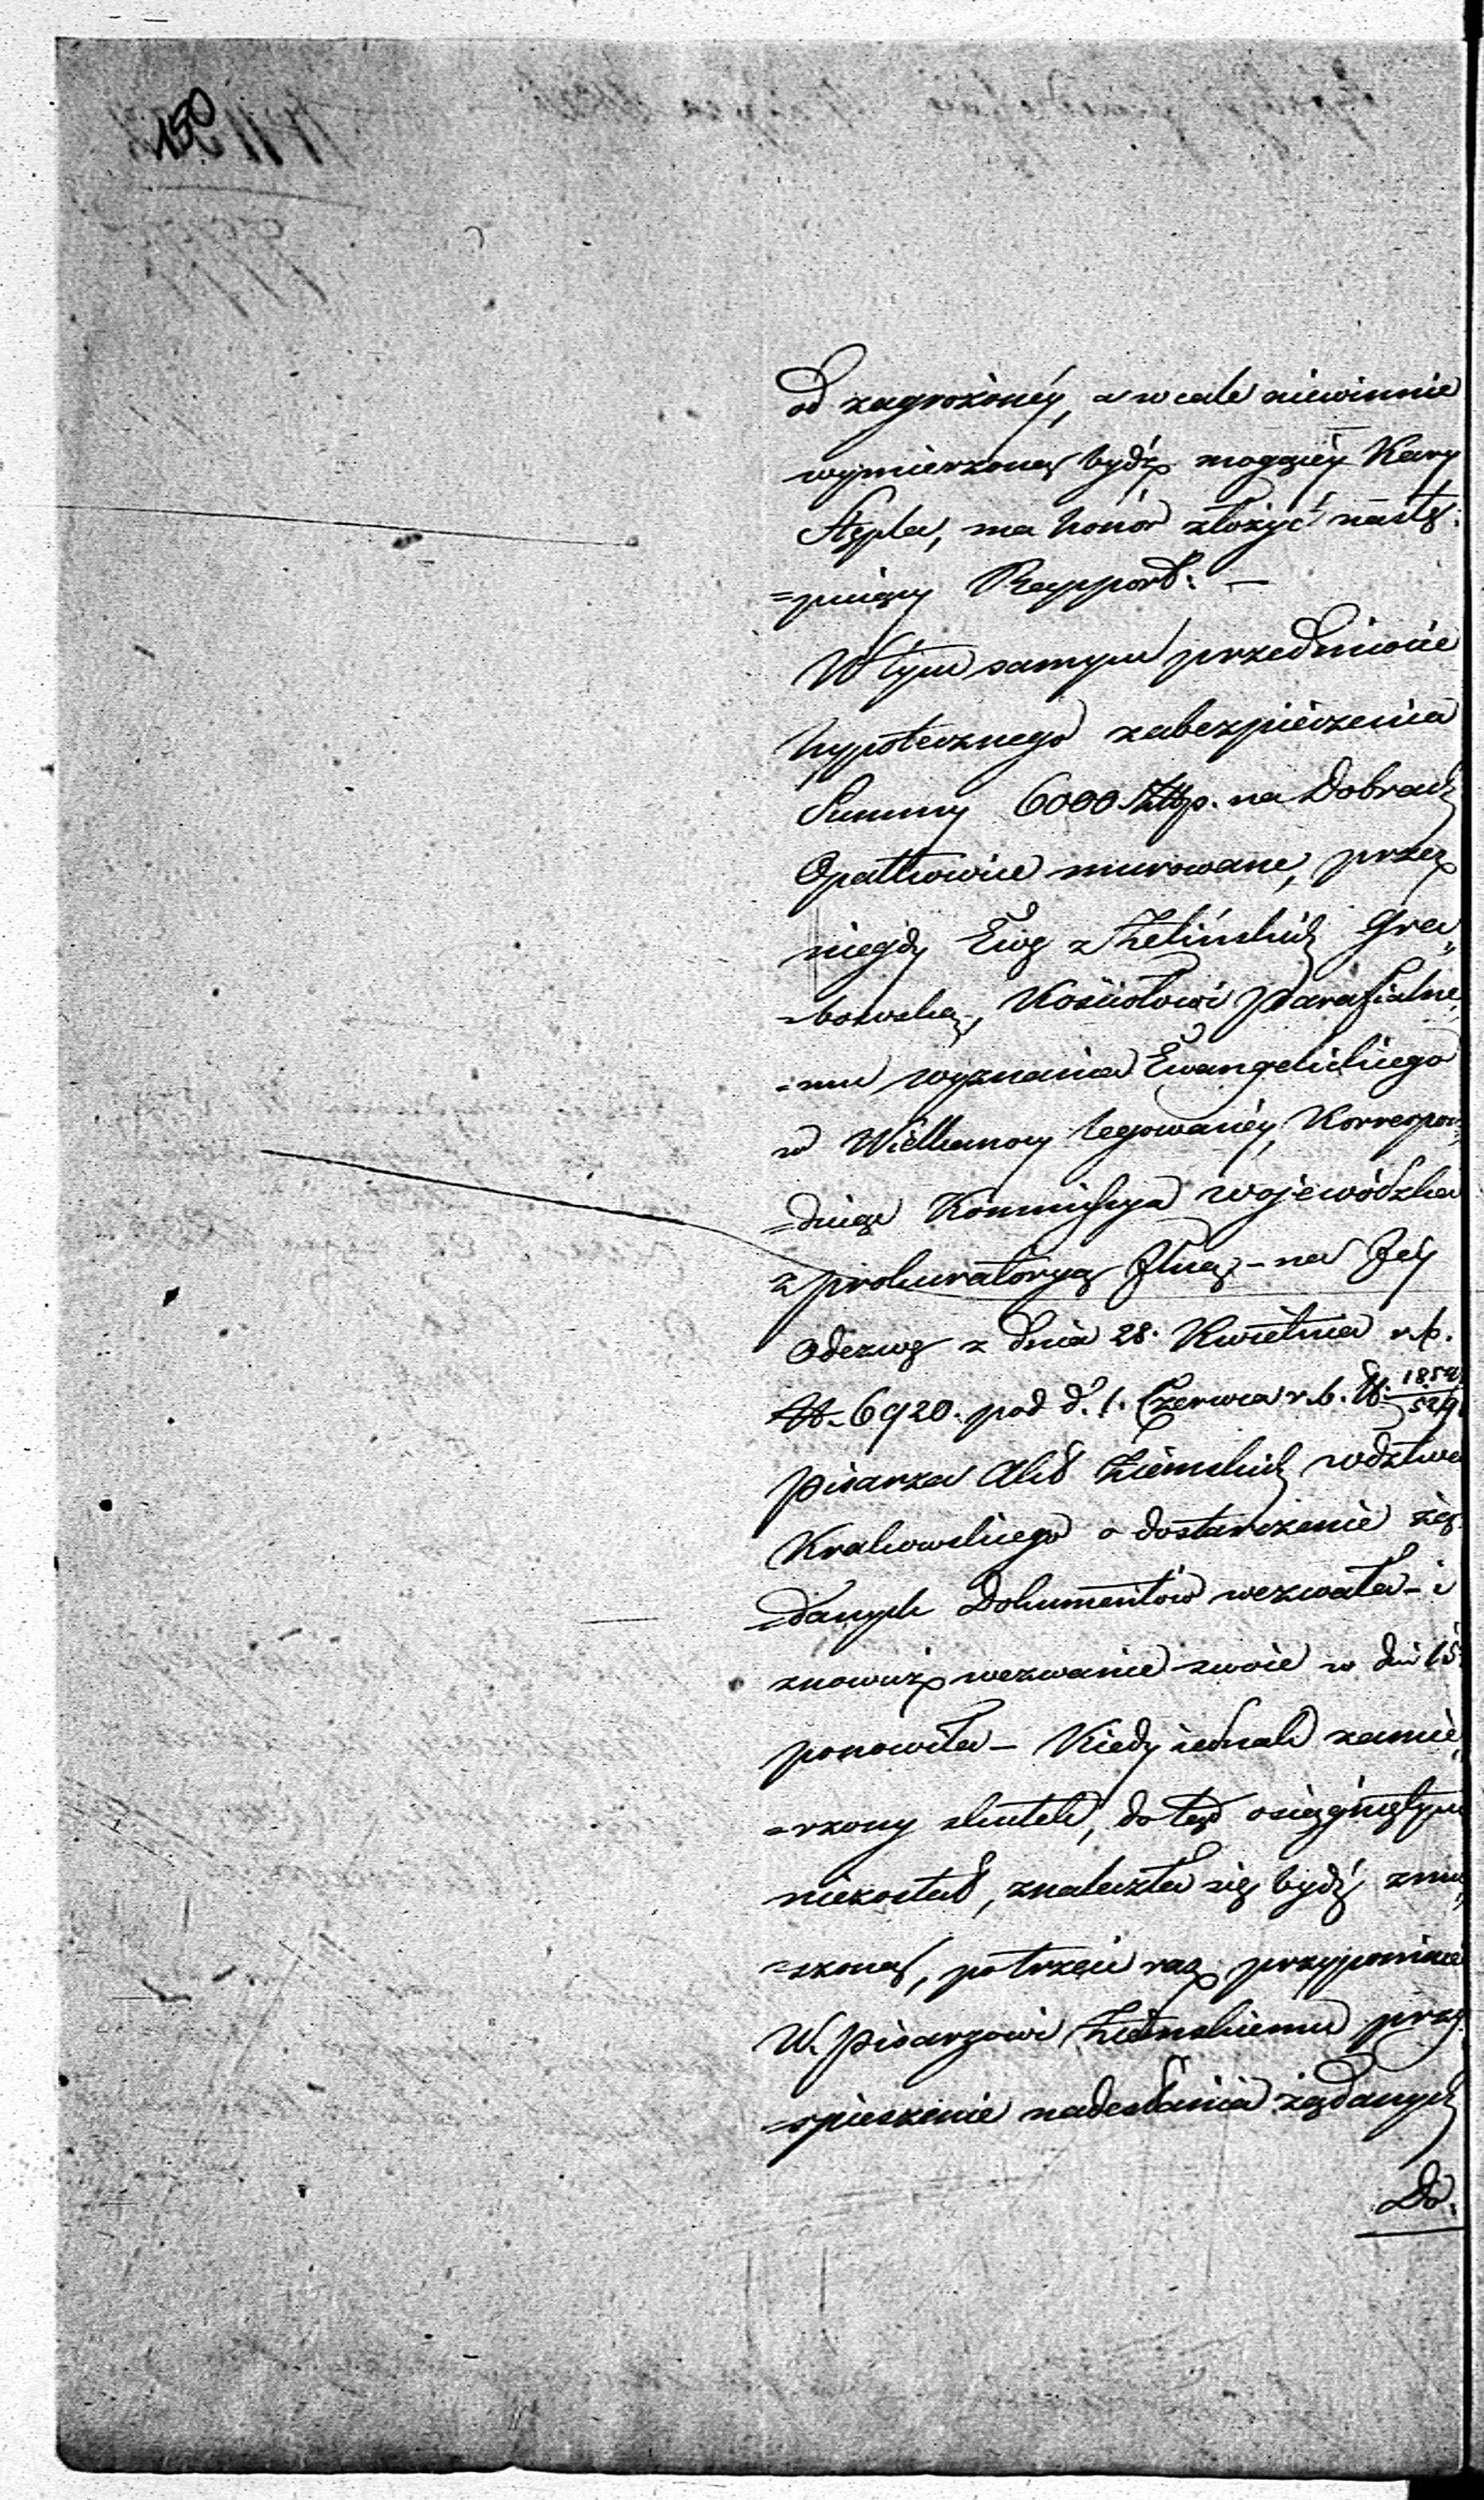 150
od zagrożoney, a wcale niewinnie
wymierzoną bydź mogącéy Kary
Stępla, ma honor złożyć nastę:
=puiący Rapport. —
W tym samym przedmiocie
hypotecznego zabezpieczenia
Summy 6000 Złtp. na Dobrach
Opatkowice murowane, przez
niegdy Ewę z Zelińskich Gra„
=bowską, Kościołowi Parafialne„
=mu wyznania Ewangelickiego
w Wielkanocy legowanéy, Korrespon„
=duiąc Kommissya Wojewódzka
z prokuratoryą Jlną – na Jéy
Odezwę z dnia 28. Kwietnia r. b.
N. 6920. pod d. 1. Czerwca r. b. N.
Pisarza Akt Ziemskich Wdztwa
Krakowskiego o dostarczenie żą„
=danych Dokumentów wezwała – i
znowuż wezwanie swoie w dniu 15
ponowiła – Kiedy iednak zamie„
=rzony skutek, do tąd osiągniętym
niezostał, znalazła się bydź zmu„
=szoną, po trzeci raz przypomnieć
W. Pisarzowi Ziemskiemu przy„
=spieszenie nadesłania żądanych
Do.